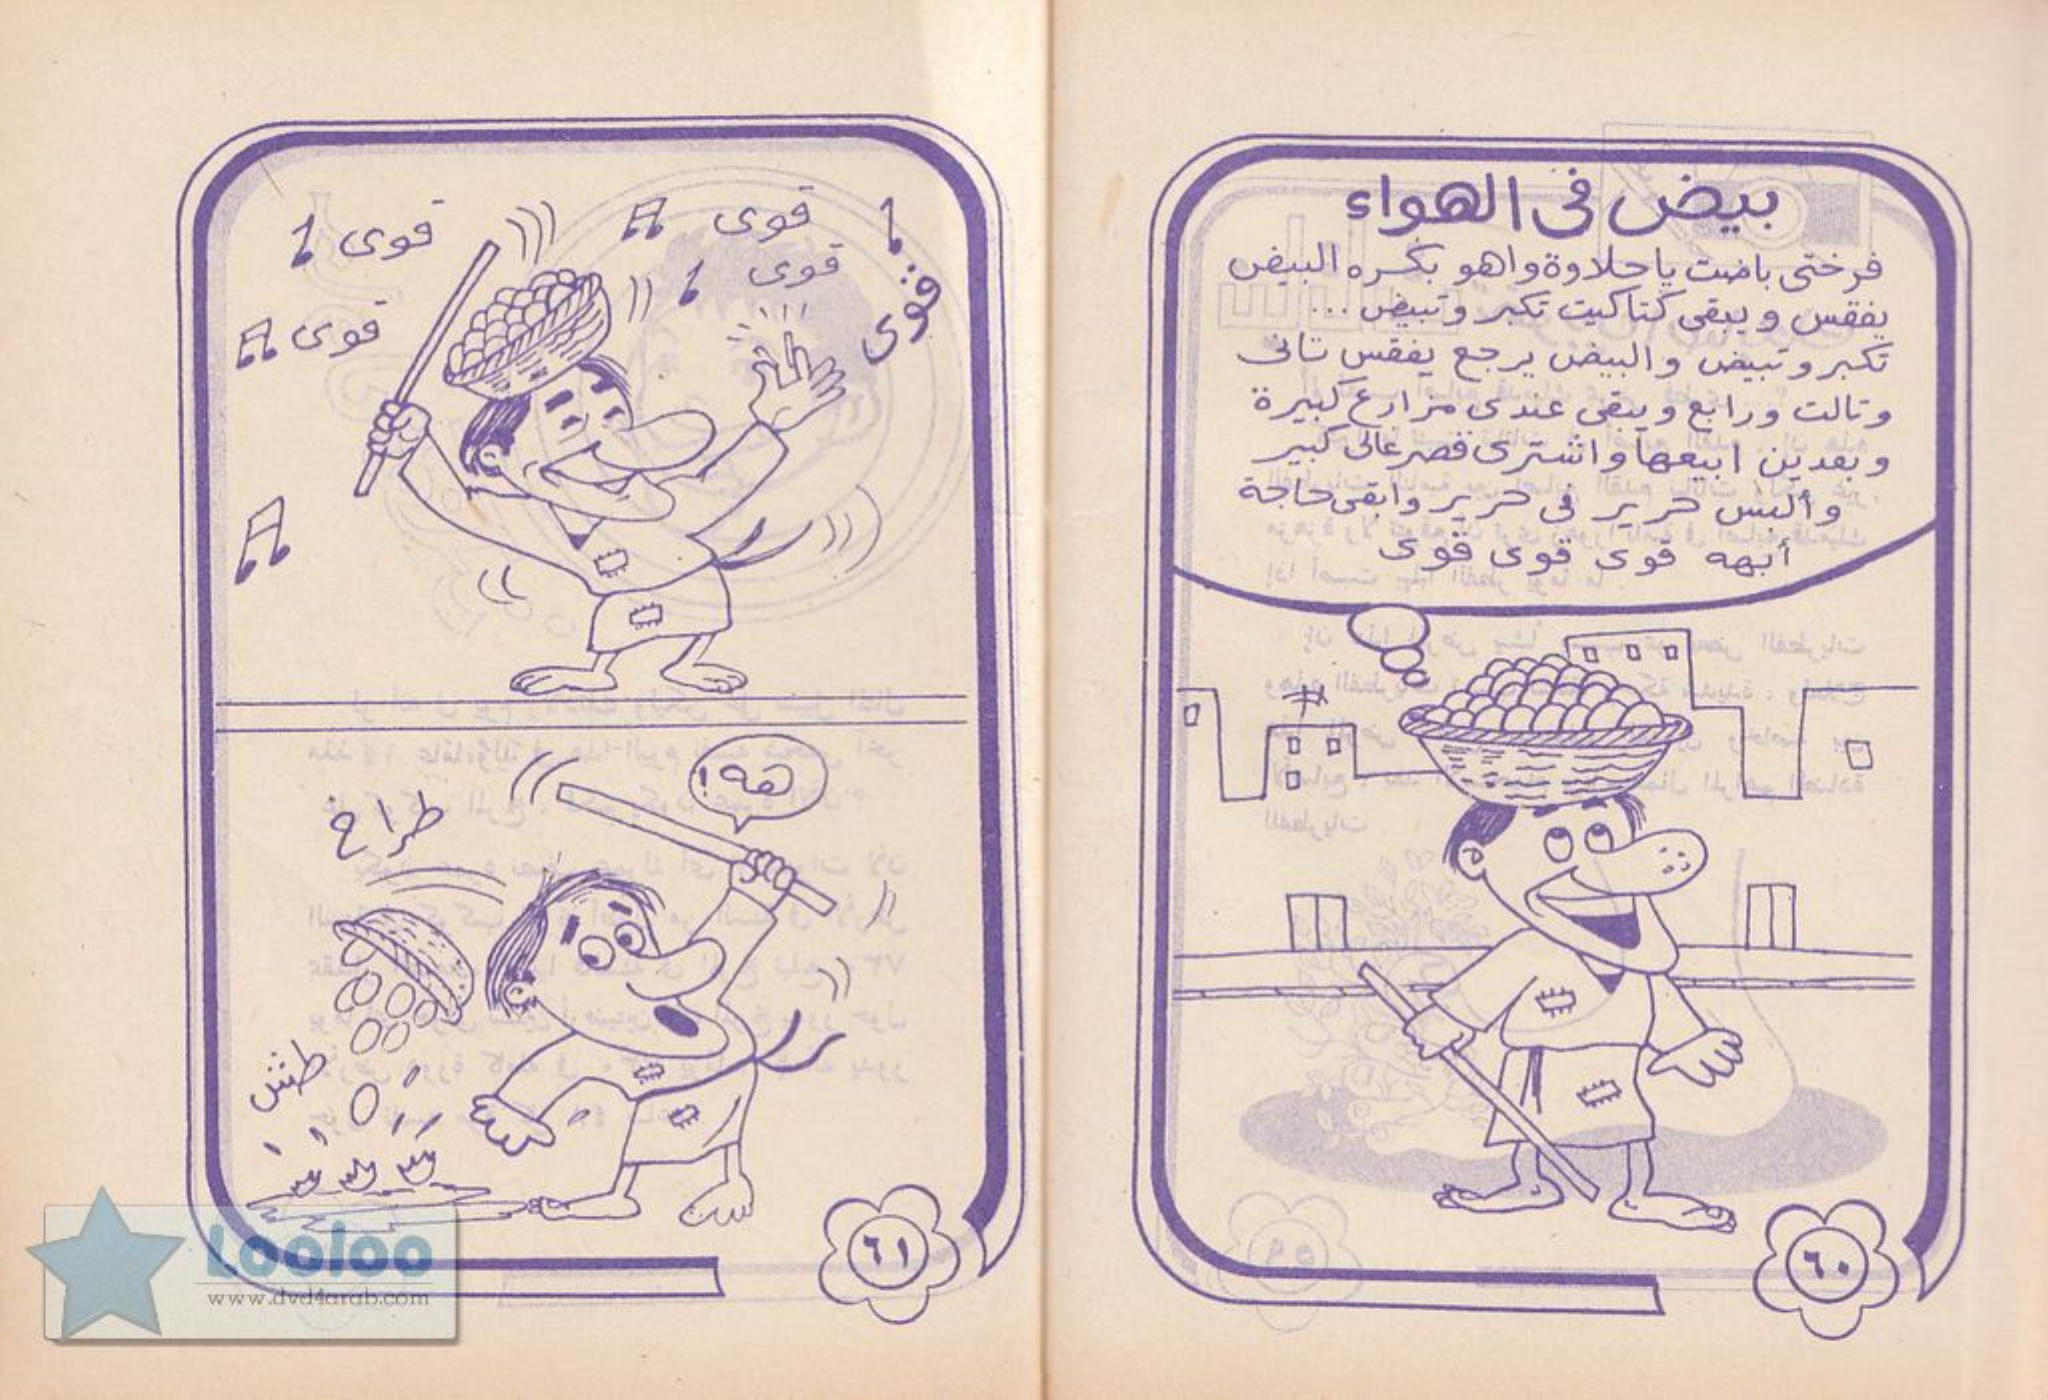 بيض فى الهواء
فرختى باضت يا حلاوة واهو بكره البيض
يفقس ويبقى كتاكيت تكبر وتبيض ...
تكبر وتبيض والبيض يرجع يفقس تانى
وتالت ورابع ويبقى عندى مزارع كبيرة
وبعدين ابيعها واشترى قصر عالى كبير
وألبس حرير فى حرير وابقى حاجة
أبهه قوى قوى قوى
٦٠
قوى
قوى
قوى
قوى
قوى
هه!
طراخ
طش
٦١
Looloo
www.dvd4arab.com